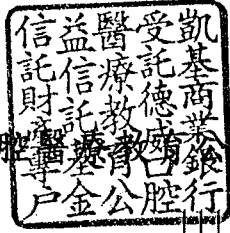 凱基商業銀行
受託德威口腔
醫療教育公
益信託基金
信託財產專戶
腔醫療教育公